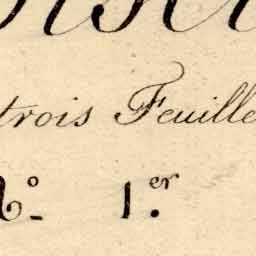 trois Feuille
N.º 1.er